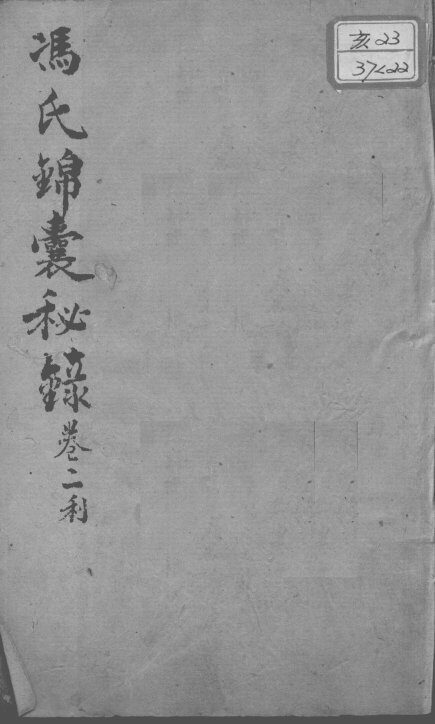 亥23
37<22
馮氏錦囊秘錄 卷二利